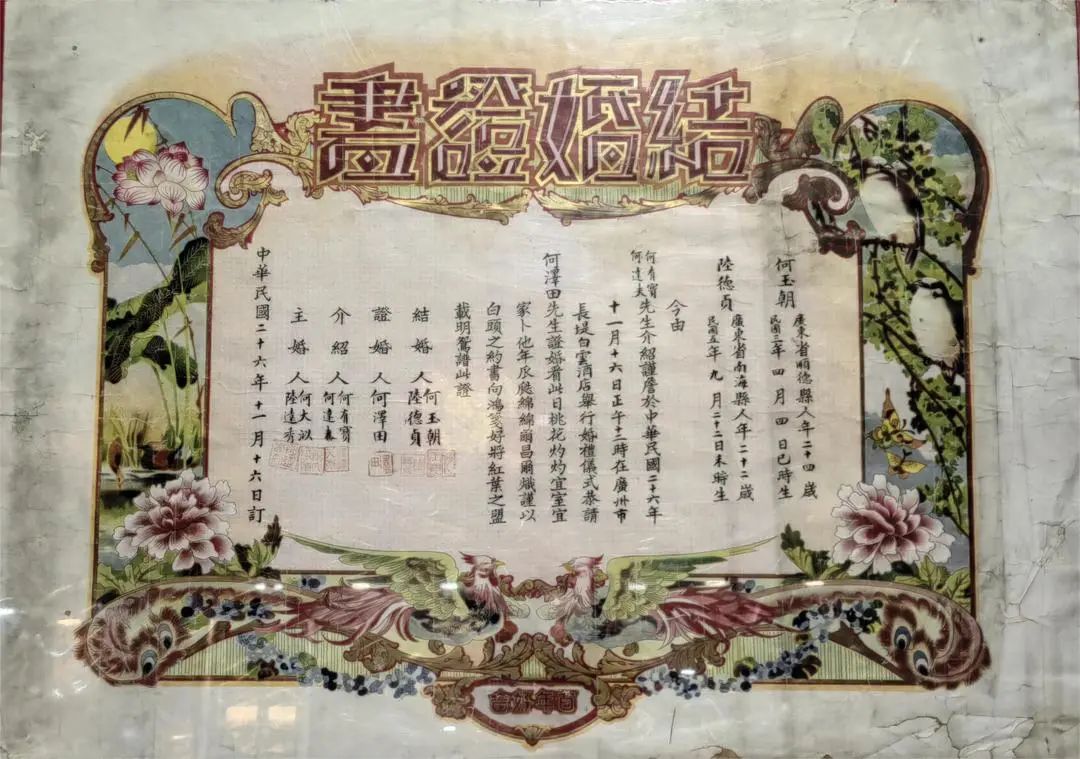 結婚證書
何玉朝
廣東省順德縣人年二十四歲
民國三年四月四日巳時生
陸德貞
廣東省南海縣人年二十二歲
民國五年九月二十二日未時生
今由
何有寶
何達夫
先生介紹謹詹於中華民國二十六年
十一月十六日正午十二時在廣州市
長堤白雲酒店舉行婚禮儀式恭請
何澤田先生證婚看此日桃花灼灼宜室宜
家卜他年瓜瓞綿綿爾昌爾熾謹以
白頭之約書向鴻箋好將紅葉之盟
載明鴛譜此證
結婚人
何玉朝
陸德貞
證婚人何澤田
介紹人
何有寶
何達
主婚人
何大
陸達秀
中華民國二十六年十一月十六日訂
百年好合